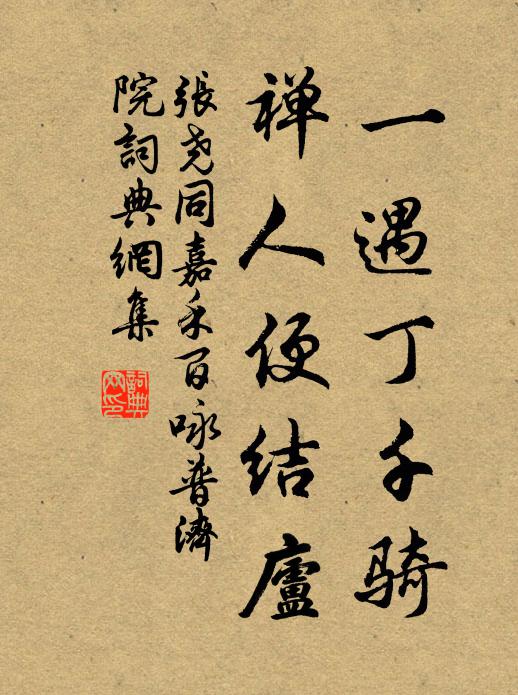 一遇丁千骑
禅人便结廬
張尧同嘉禾百咏普濟
院詞典網集
詞典網印